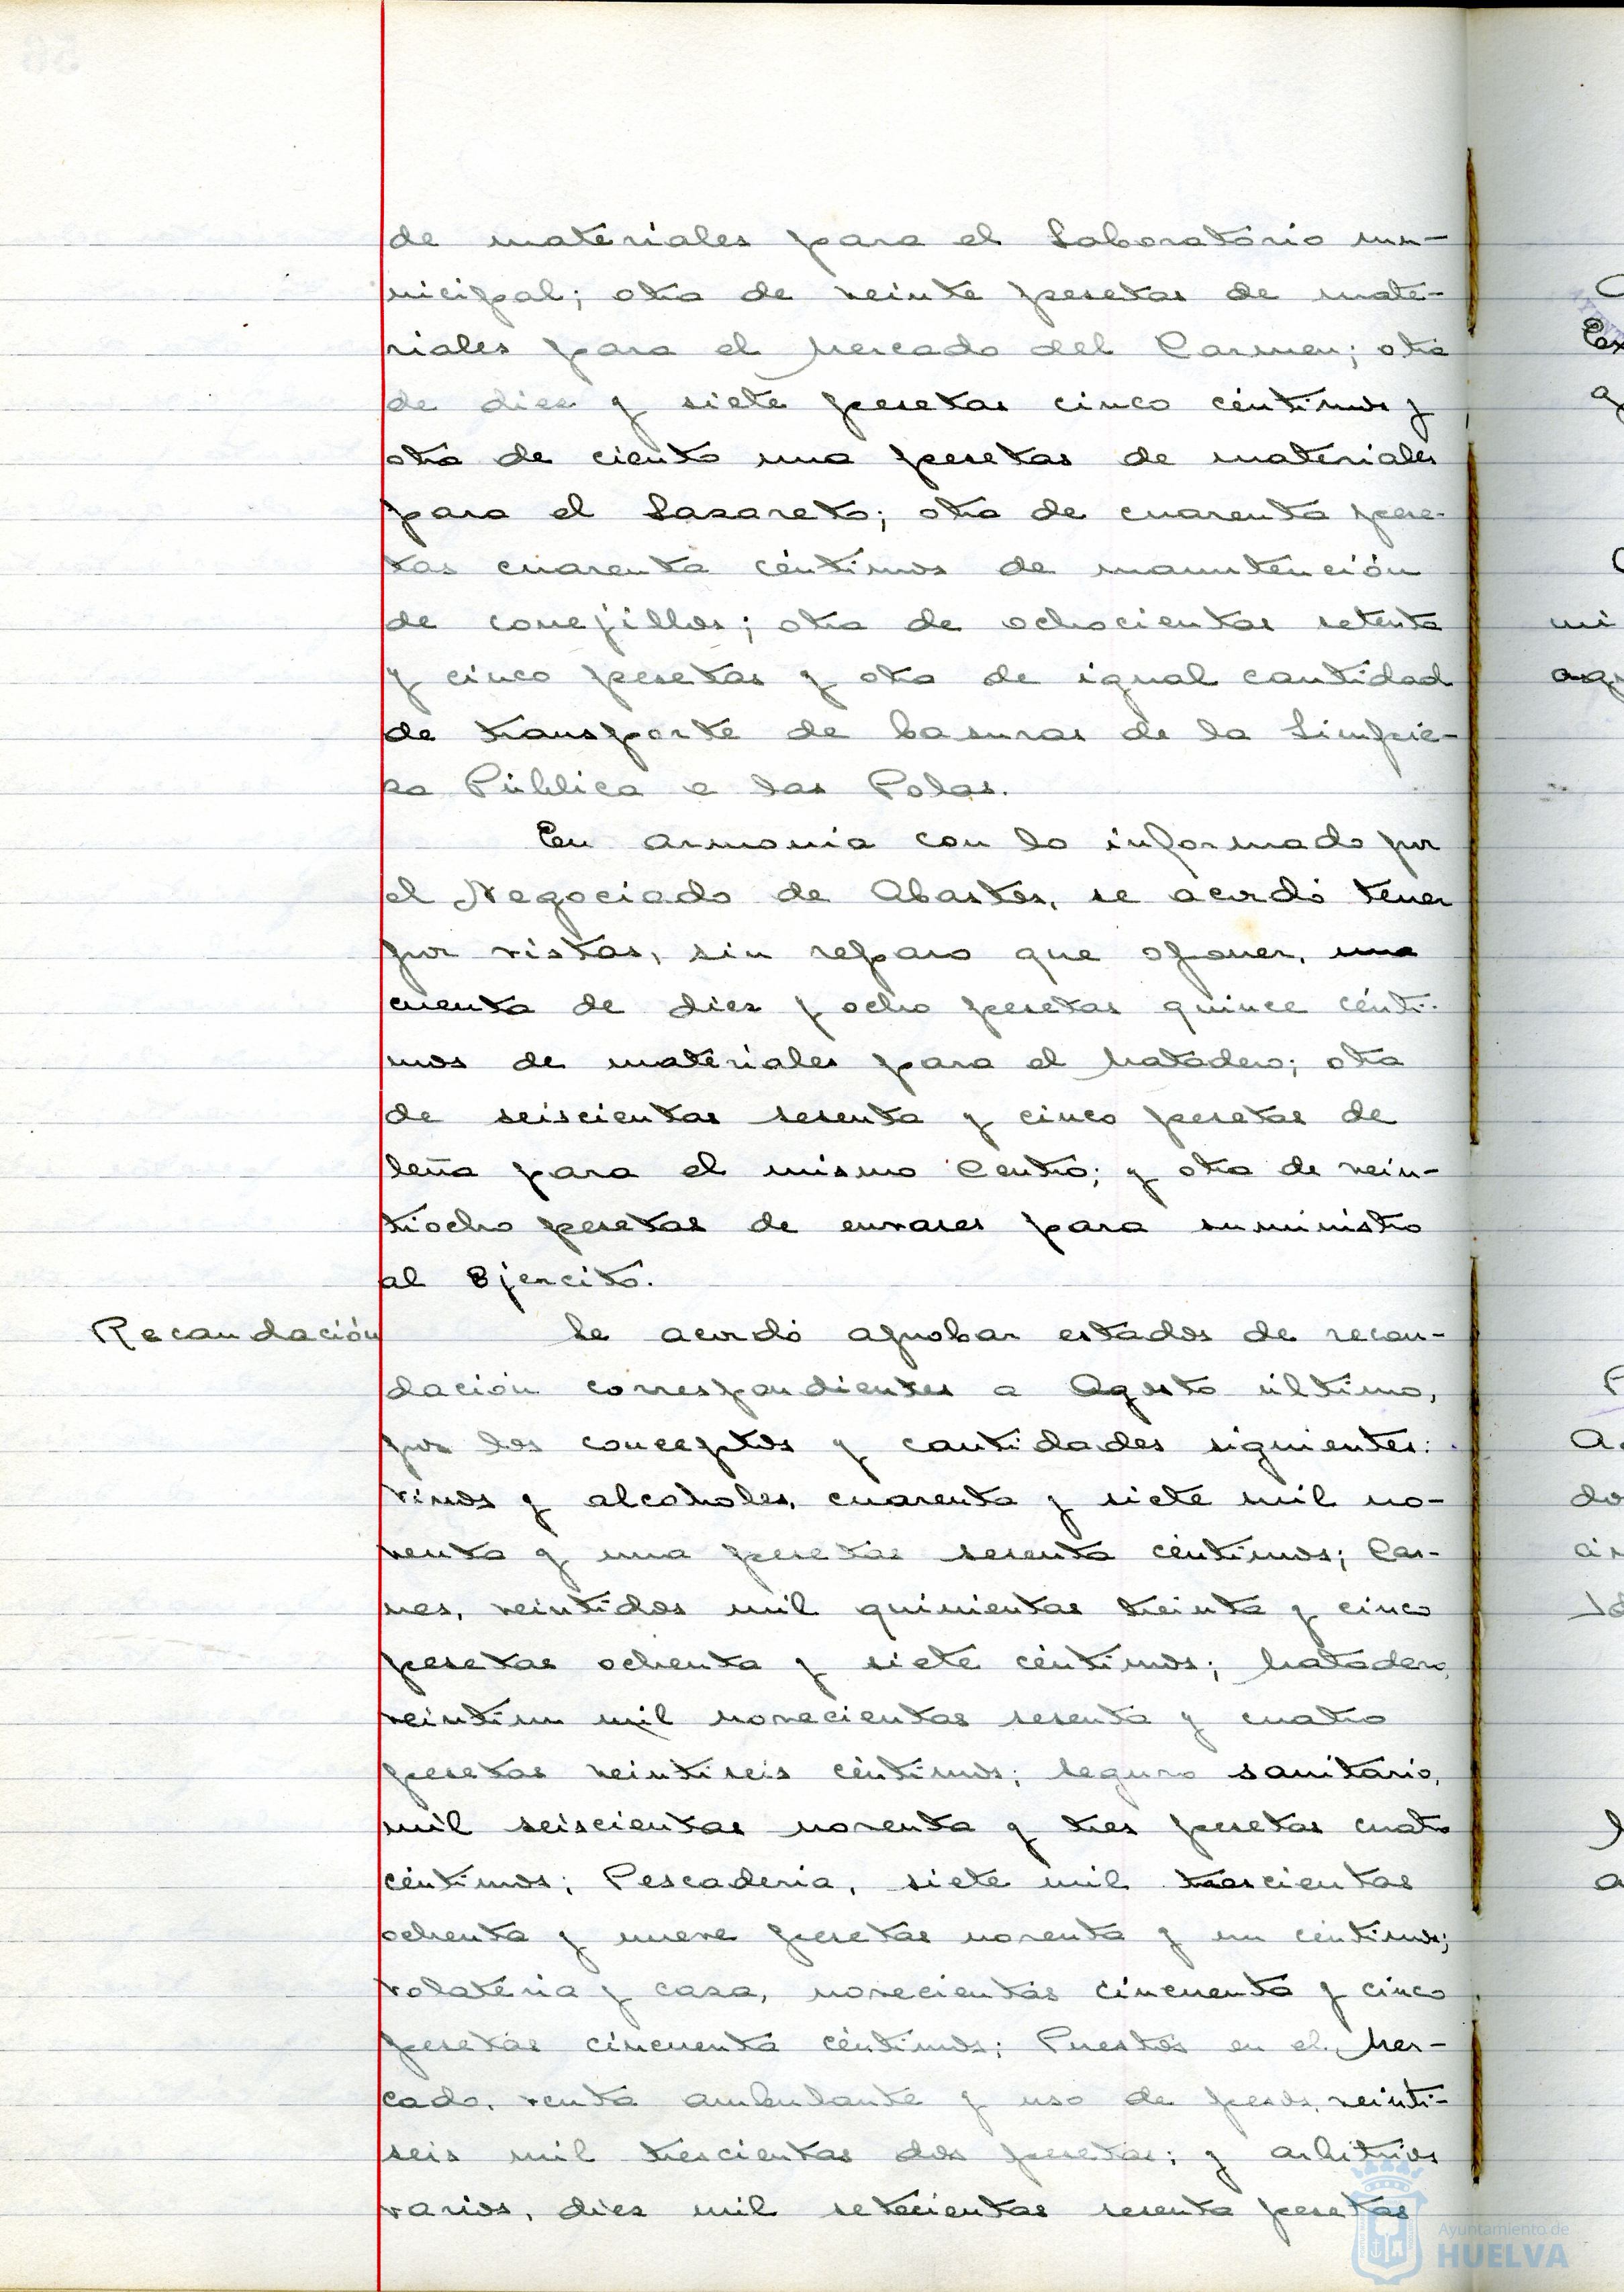 de materiales para el Laboratorio mu-
nicipal; otra de veinte pesetas de mate-
riales para el Mercado del Carmen; otra
de diez y siete pesetas cinco céntimos y
otra de ciento una pesetas de materiales
para el Lazareto; otra de cuarenta pese-
tas cuarenta céntimos de manutención
de conejillos; otra de ochocientas setenta
y cinco pesetas y otra de igual cantidad
de transporte de basuras de la Limpie-
za Pública a las Polas.
En armonia con lo informado por
el Negociado de Abastos, se acordó tener
por vistas, sin reparo que oponer, una
cuenta de diez y ocho pesetas quince cénti-
mos de materiales para el Matadero; otra
de seiscientas sesenta y cinco pesetas de
leña para el mismo Centro; y otra de vein-
tiocho pesetas de envases para suministro
al Ejercito.
Recaudación
Se acordó aprobar estados de recau-
dación correspondientes a Agosto último,
por los conceptos y cantidades siguientes:
Vinos y alcoholes, cuarenta y siete mil no-
venta y una pesetas sesenta céntimos; Car-
nes, veintidos mil quinientas treinta y cinco
pesetas ochenta y siete céntimos; Matadero,
veintiun mil novecientas sesenta y cuatro
pesetas veintiseis céntimos; Seguro sanitario,
mil seiscientas noventa y tres pesetas cuatro
céntimos; Pescaderia, siete mil trescientas
ochenta y nueve pesetas noventa y un céntimos;
Volateria y caza, novecientas cincuenta y cinco
pesetas cincuenta céntimos; Puestos en el Mer-
cado, venta ambulante y uso de pesos, veinti-
seis mil trescientas dos pesetas; y arbitrios
varios, diez mil setecientas sesenta pesetas
Ayuntamiento de
HUELVA